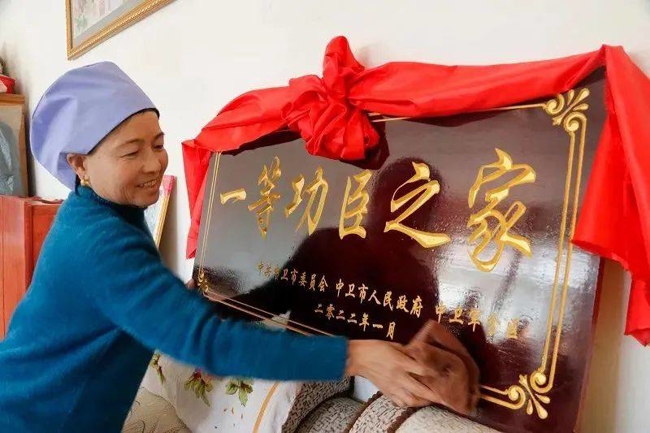 一等功臣之家
中共中卫市委员会 中卫市人民政府 中卫军分区
二零二二年一月